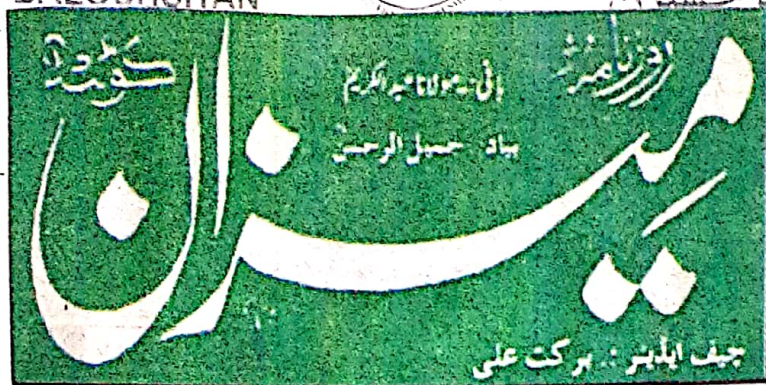 BALOCHISTAN
روزنامہ
میزان
کوئٹہ
بانی: مولانا عبدالکریم
بیاد جمیل الرحمن
چیف ایڈیٹر : برکت علی